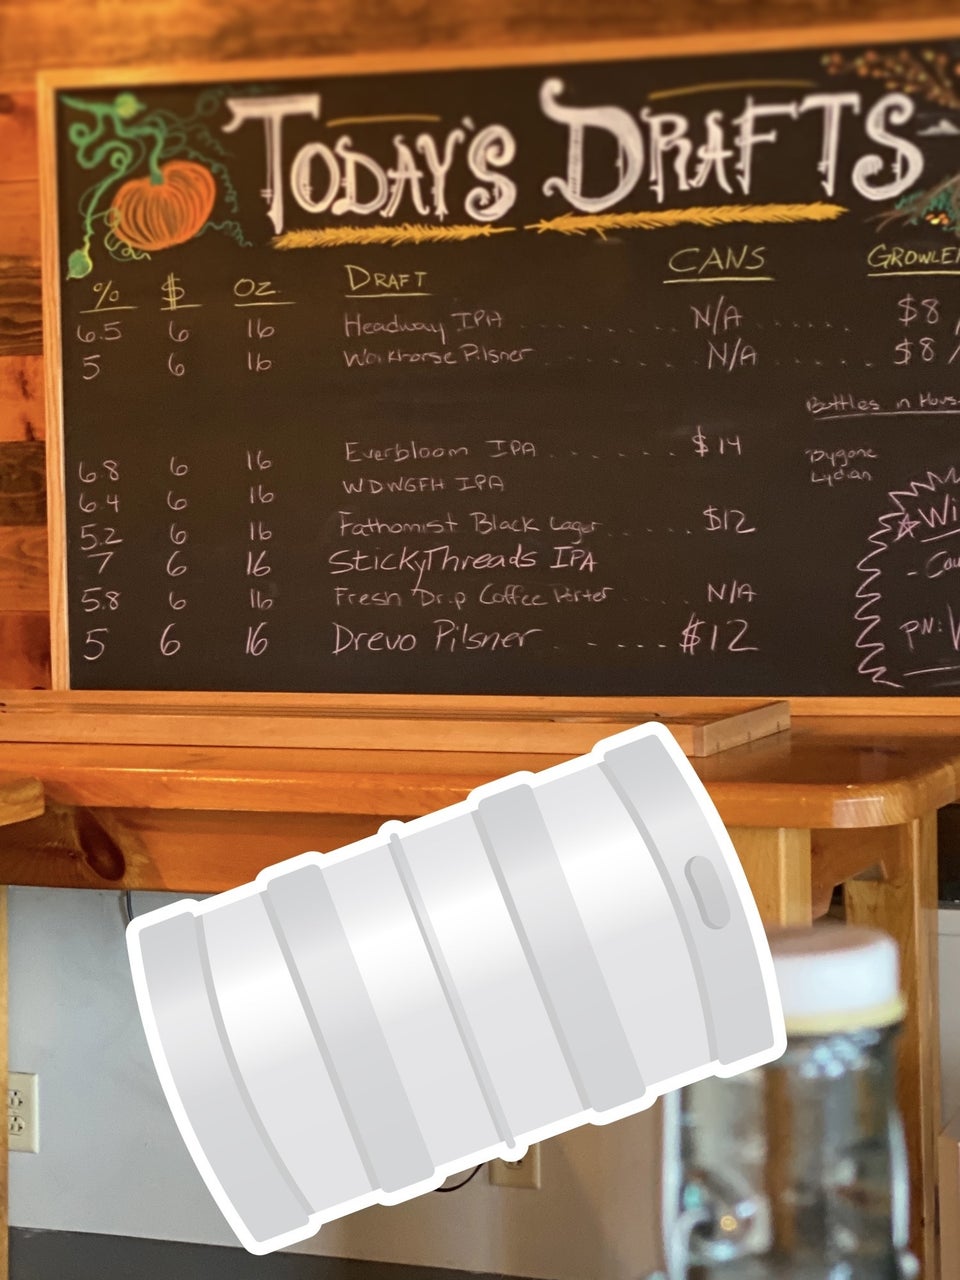 TODAY'S DRAFTS
% $ OZ DRAFT CANS
6.5 6 16 Headway IPA . . . . . . . N/A . . . . . . $8 /
5 6 16 Workhorse Pilsner . . . . . N/A . . . . . $8 /
Bottles in
6.8 6 16 Everbloom IPA . . . . . . $14
Dygone
Lydian
6.4 6 16 WDWGFH IPA
5.2 6 16 Fathomist Black Lager . . . . $12
7 6 16 StickyThreads IPA
5.8 6 16 Fresh Drip Coffee Porter . . . . N/A
PN:
5 6 16 Drevo Pilsner . - . . . . $12